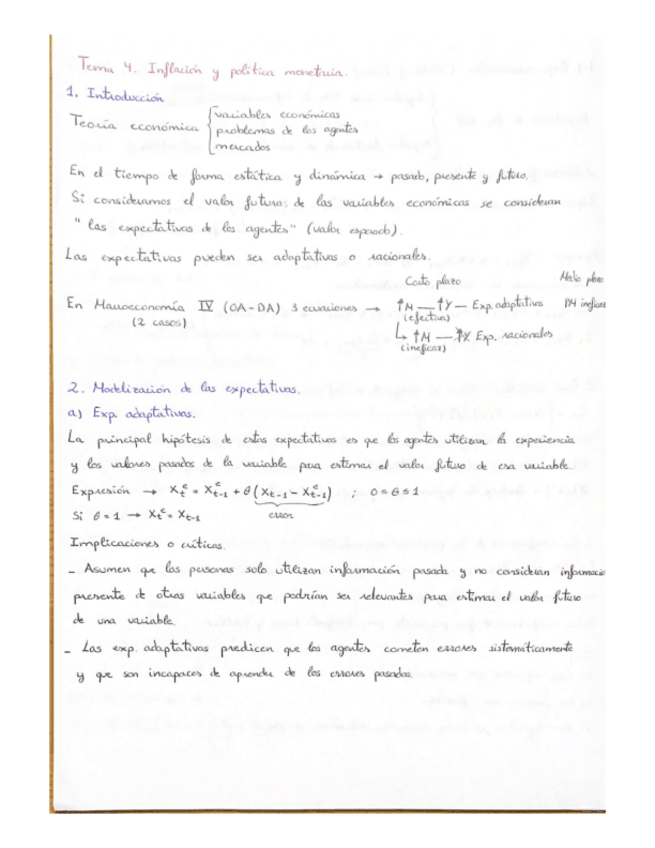 Tema 4. Inflación y política monetaria.
1. Introducción
Teoría económica { variables económicas
problemas de los agentes
mercados
En el tiempo de forma estática y dinámica → pasado, presente y futuro.
Si consideramos el valor futuro de las variables económicas se consideran
" las expectativas de los agentes" (valor esperado).
Las expectativas pueden ser adaptativas o racionales.
Corto plazo Medio plazo
En Macroeconomía IV (OA-DA) 3 ecuaciones → ↑M — ↑Y — Exp. adaptativas PM
(2 casos) (efectiva)
↳ ↑M — Exp. racionales
(ineficaz)
2. Modelización de las expectativas.
a) Exp. adaptativas.
La principal hipótesis de estas expectativas es que los agentes utilizan la experiencia
y los valores pasados de la variable para estimar el valor futuro de esa variable.
Expresión → Xₜᵉ = Xₜ₋₁ᵉ + θ(Xₜ₋₁ - Xₜ₋₁ᵉ) ; 0 ≤ θ ≤ 1
Si θ = 1 → Xₜᵉ = Xₜ₋₁ error
Implicaciones o críticas.
- Asumen que las personas solo utilizan información pasada y no consideran
presente de otras variables que podrían ser relevantes para estimar el valor futuro
de una variable.
- Las exp. adaptativas predicen que los agentes cometen errores sistemáticamente
y que son incapaces de aprender de los errores pasados.